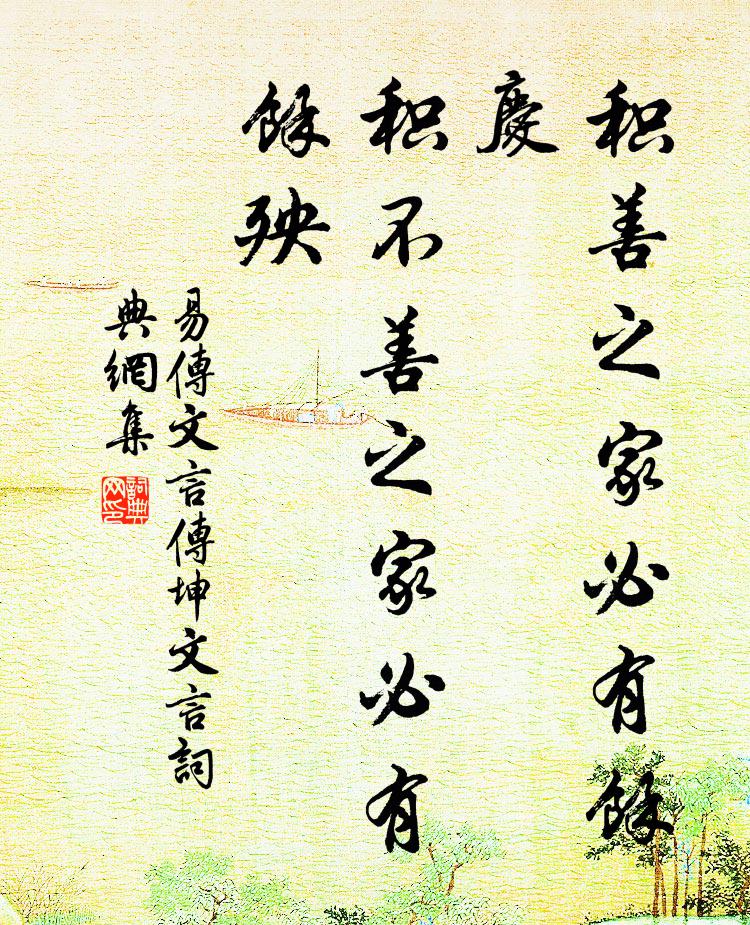 积善之家必有餘
慶
积不善之家必有
餘殃
易傳文言傳坤文言詞
典網集
詞典
网印